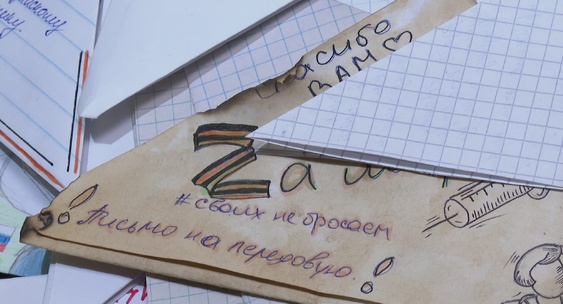 Спасибо
ВАМ
Zа
#своих не бросаем
! Письмо на передовую. !